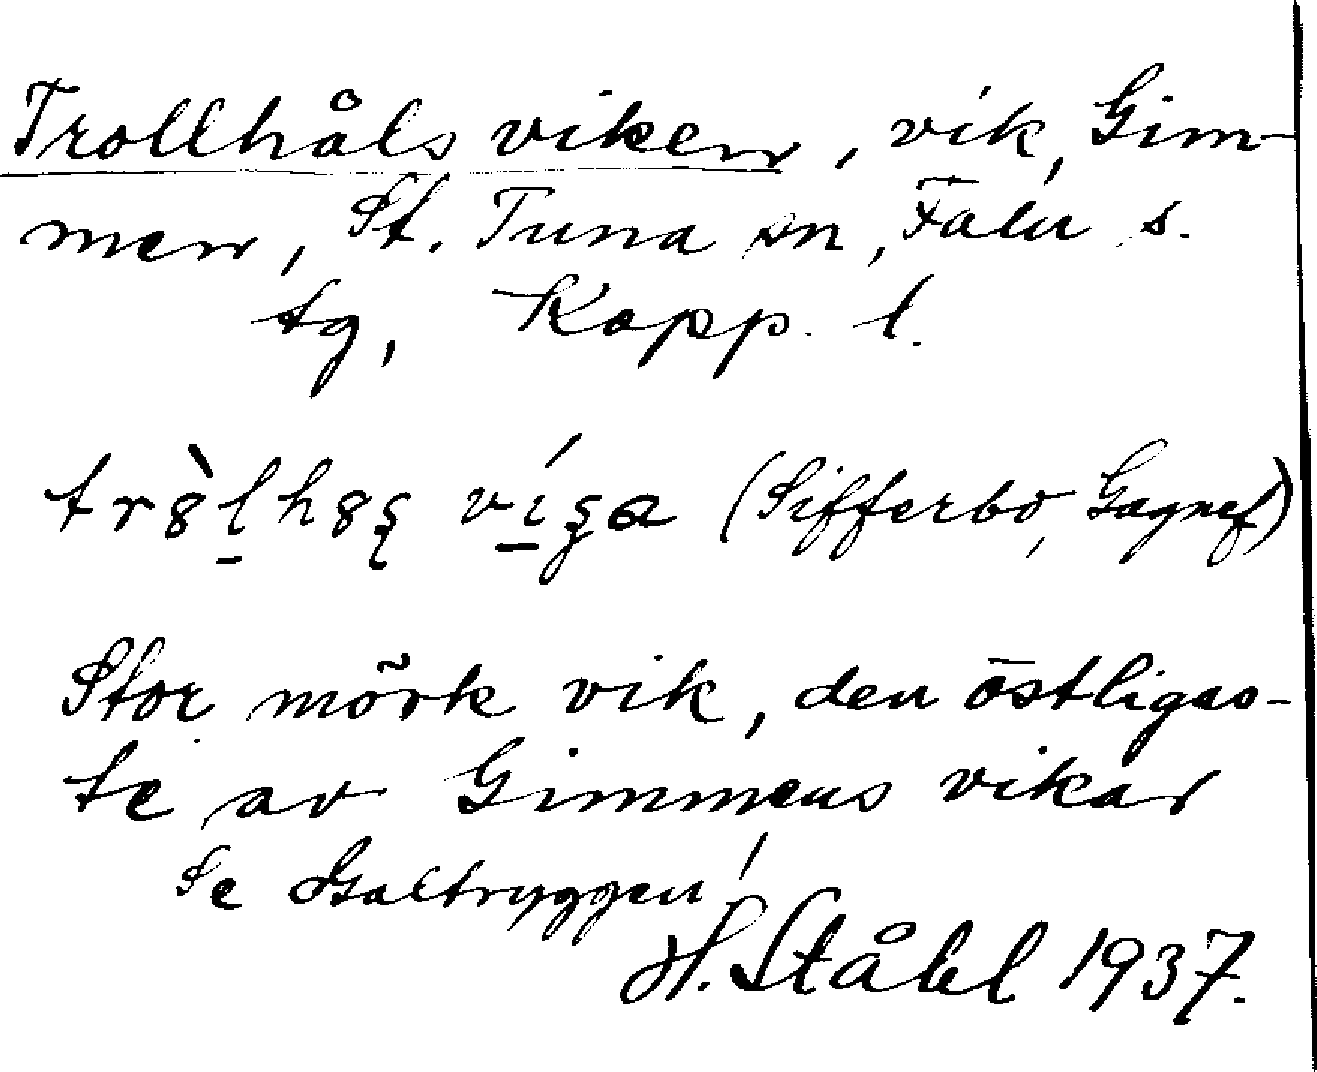 Trollhåls viken, vik, Gim-
men, St. Tuna sn, Falu s.
tg, Kopp. l.
tr8̀l̠h8ș ví̠ga (Sifferbo, Gagnef)
Stor mörk vik, den östligas-
te av Gimmens vikar
Se Galtryggen!
H. Ståhl 1937.